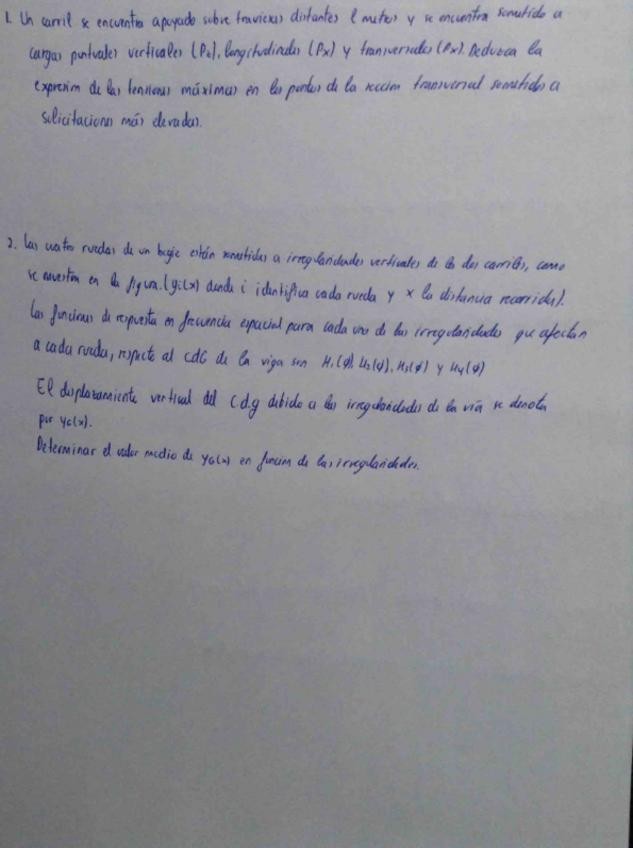 1. Un carril se encuentra apoyado sobre traviesas distantes l metros y se encuentra sometido a
cargas puntuales verticales (Pz), longitudinales (Px) y transversales (Px). Deduzca la
expresión de las tensiones máximas en los puntos de la sección transversal sometidos a
solicitaciones más elevadas.
2. Las cuatro ruedas de un bogie están sometidas a irregularidades verticales de los dos carriles, como
se muestra en la figura. (yi(x) donde i identifica cada rueda y x la distancia recorrida).
Las funciones de respuesta en frecuencia espacial para cada una de las irregularidades que afectan
a cada rueda, respecto al CdG de la viga son H1(φ), H2(φ), H3(φ) y H4(φ)
El desplazamiento vertical del C.d.g debido a las irregularidades de la vía se denota
por yG(x).
Determinar el valor medio de yG(x) en función de las irregularidades.